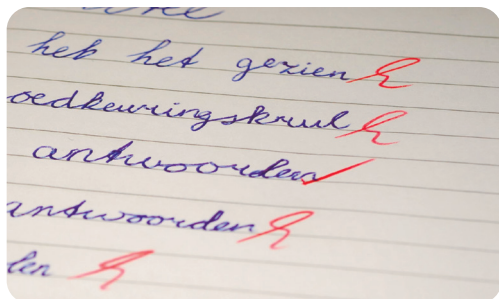 heb het gezien
oedkeuringskrul
antwoorden
antwoorden
len